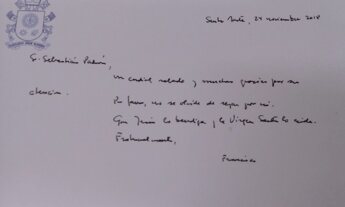 Santa Marta, 24 noviembre 2018
Sr. Sebastián
un cordial saludo y muchas gracias por su
atención.
Por favor, no se olvide de rezar por mí.
Que Jesús lo bendiga y la Virgen Santa lo cuide.
Fraternalmente,
Francisco